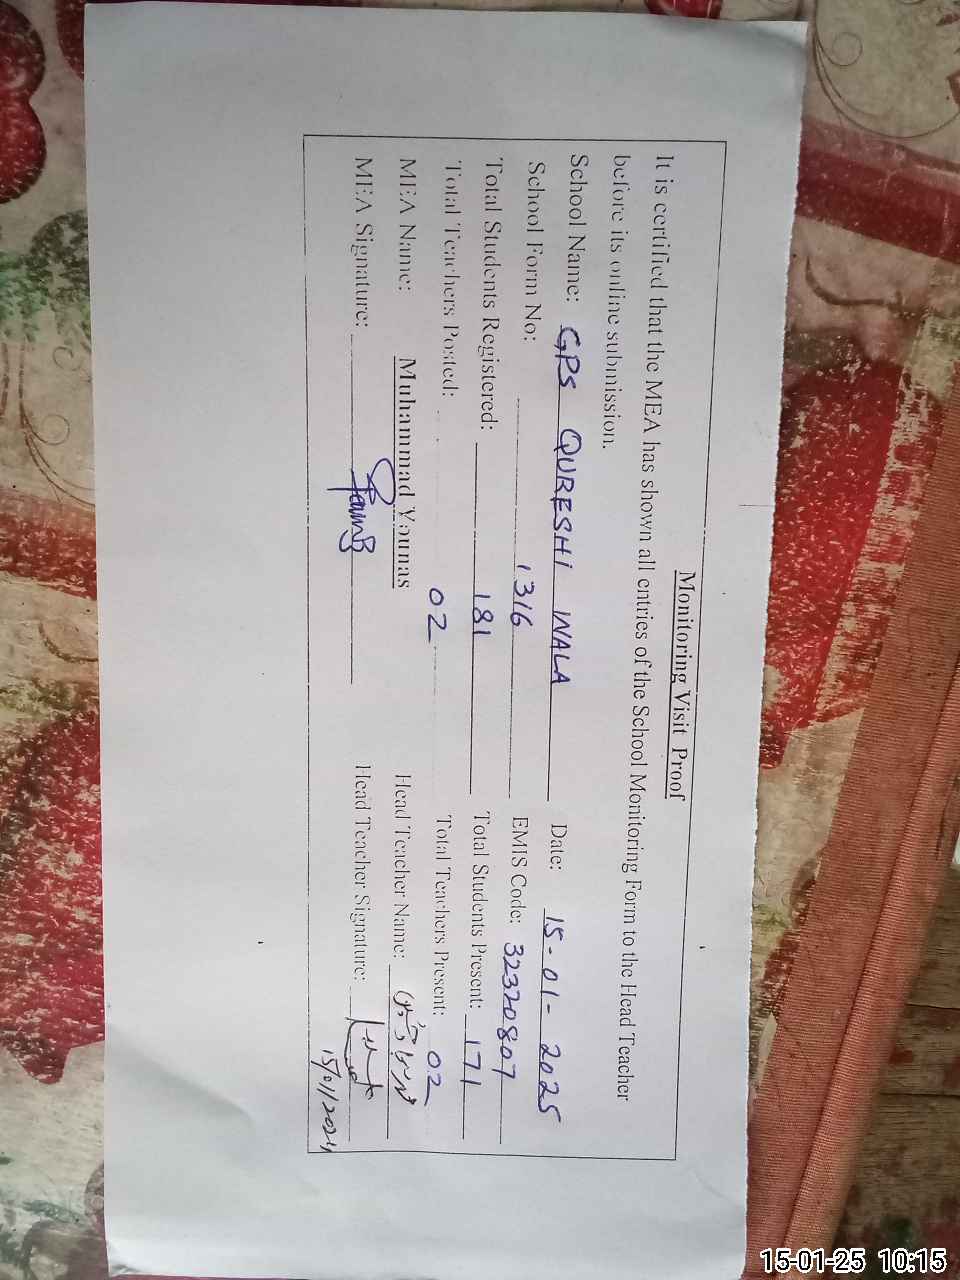 Monitoring Visit Proof
It is certified that the MEA has shown all entries of the School Monitoring Form to the Head Teacher
before its online submission.
School Name: GPS QURESHI WALA Date: 15-01-2025
School Form No: 1316 EMIS Code: 32320807
Total Students Registered: 181 Total Students Present: 171
Total Teachers Posted: 02 Total Teachers Present: 02
MEA Name: Muhammad Younas Head Teacher Name:
MEA Signature: Head Teacher Signature:
15/01/2024
15-01-25 10:15